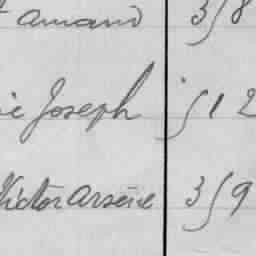 Amand 3/8
Joseph /12
Victor Arsène 3/9